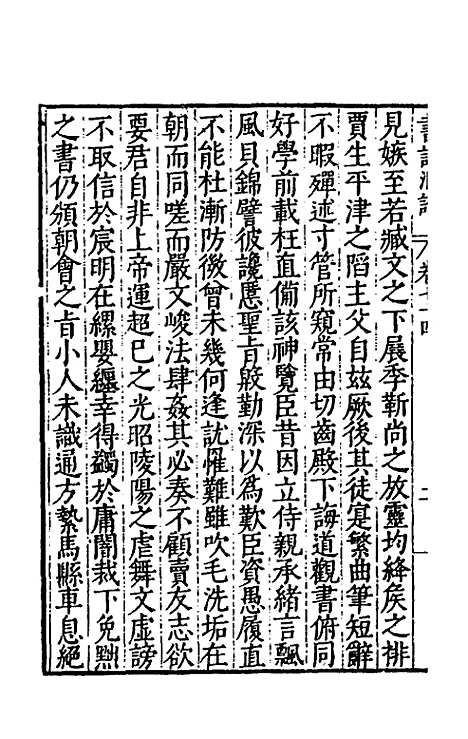 見嫉至若臧文之下展季靳尚之放靈均絳侯之排
賈生平津之䧟主父自兹厥後其徒寔繁曲筆短辭
不暇殫述寸管所窺常由切齒殿下誨道觀書俯同
好學前載枉直備該神覽臣昔因立侍親承緒言飄
風貝錦譬彼讒慝聖旨殷勤深以爲歎臣資愚履直
不能杜漸防微曾未幾何逢訧罹難雖吹毛洗垢在
朝而同嗟而嚴文峻法肆姦其必奏不顧賣友志欲
要君自非上帝運超已之光昭陵陽之虐舞文虛謗
不取信於宸明在縲嬰纆幸得蠲於庸闇裁下免黜
之書仍頒朝會之旨小人未識通方縶馬縣車息絕